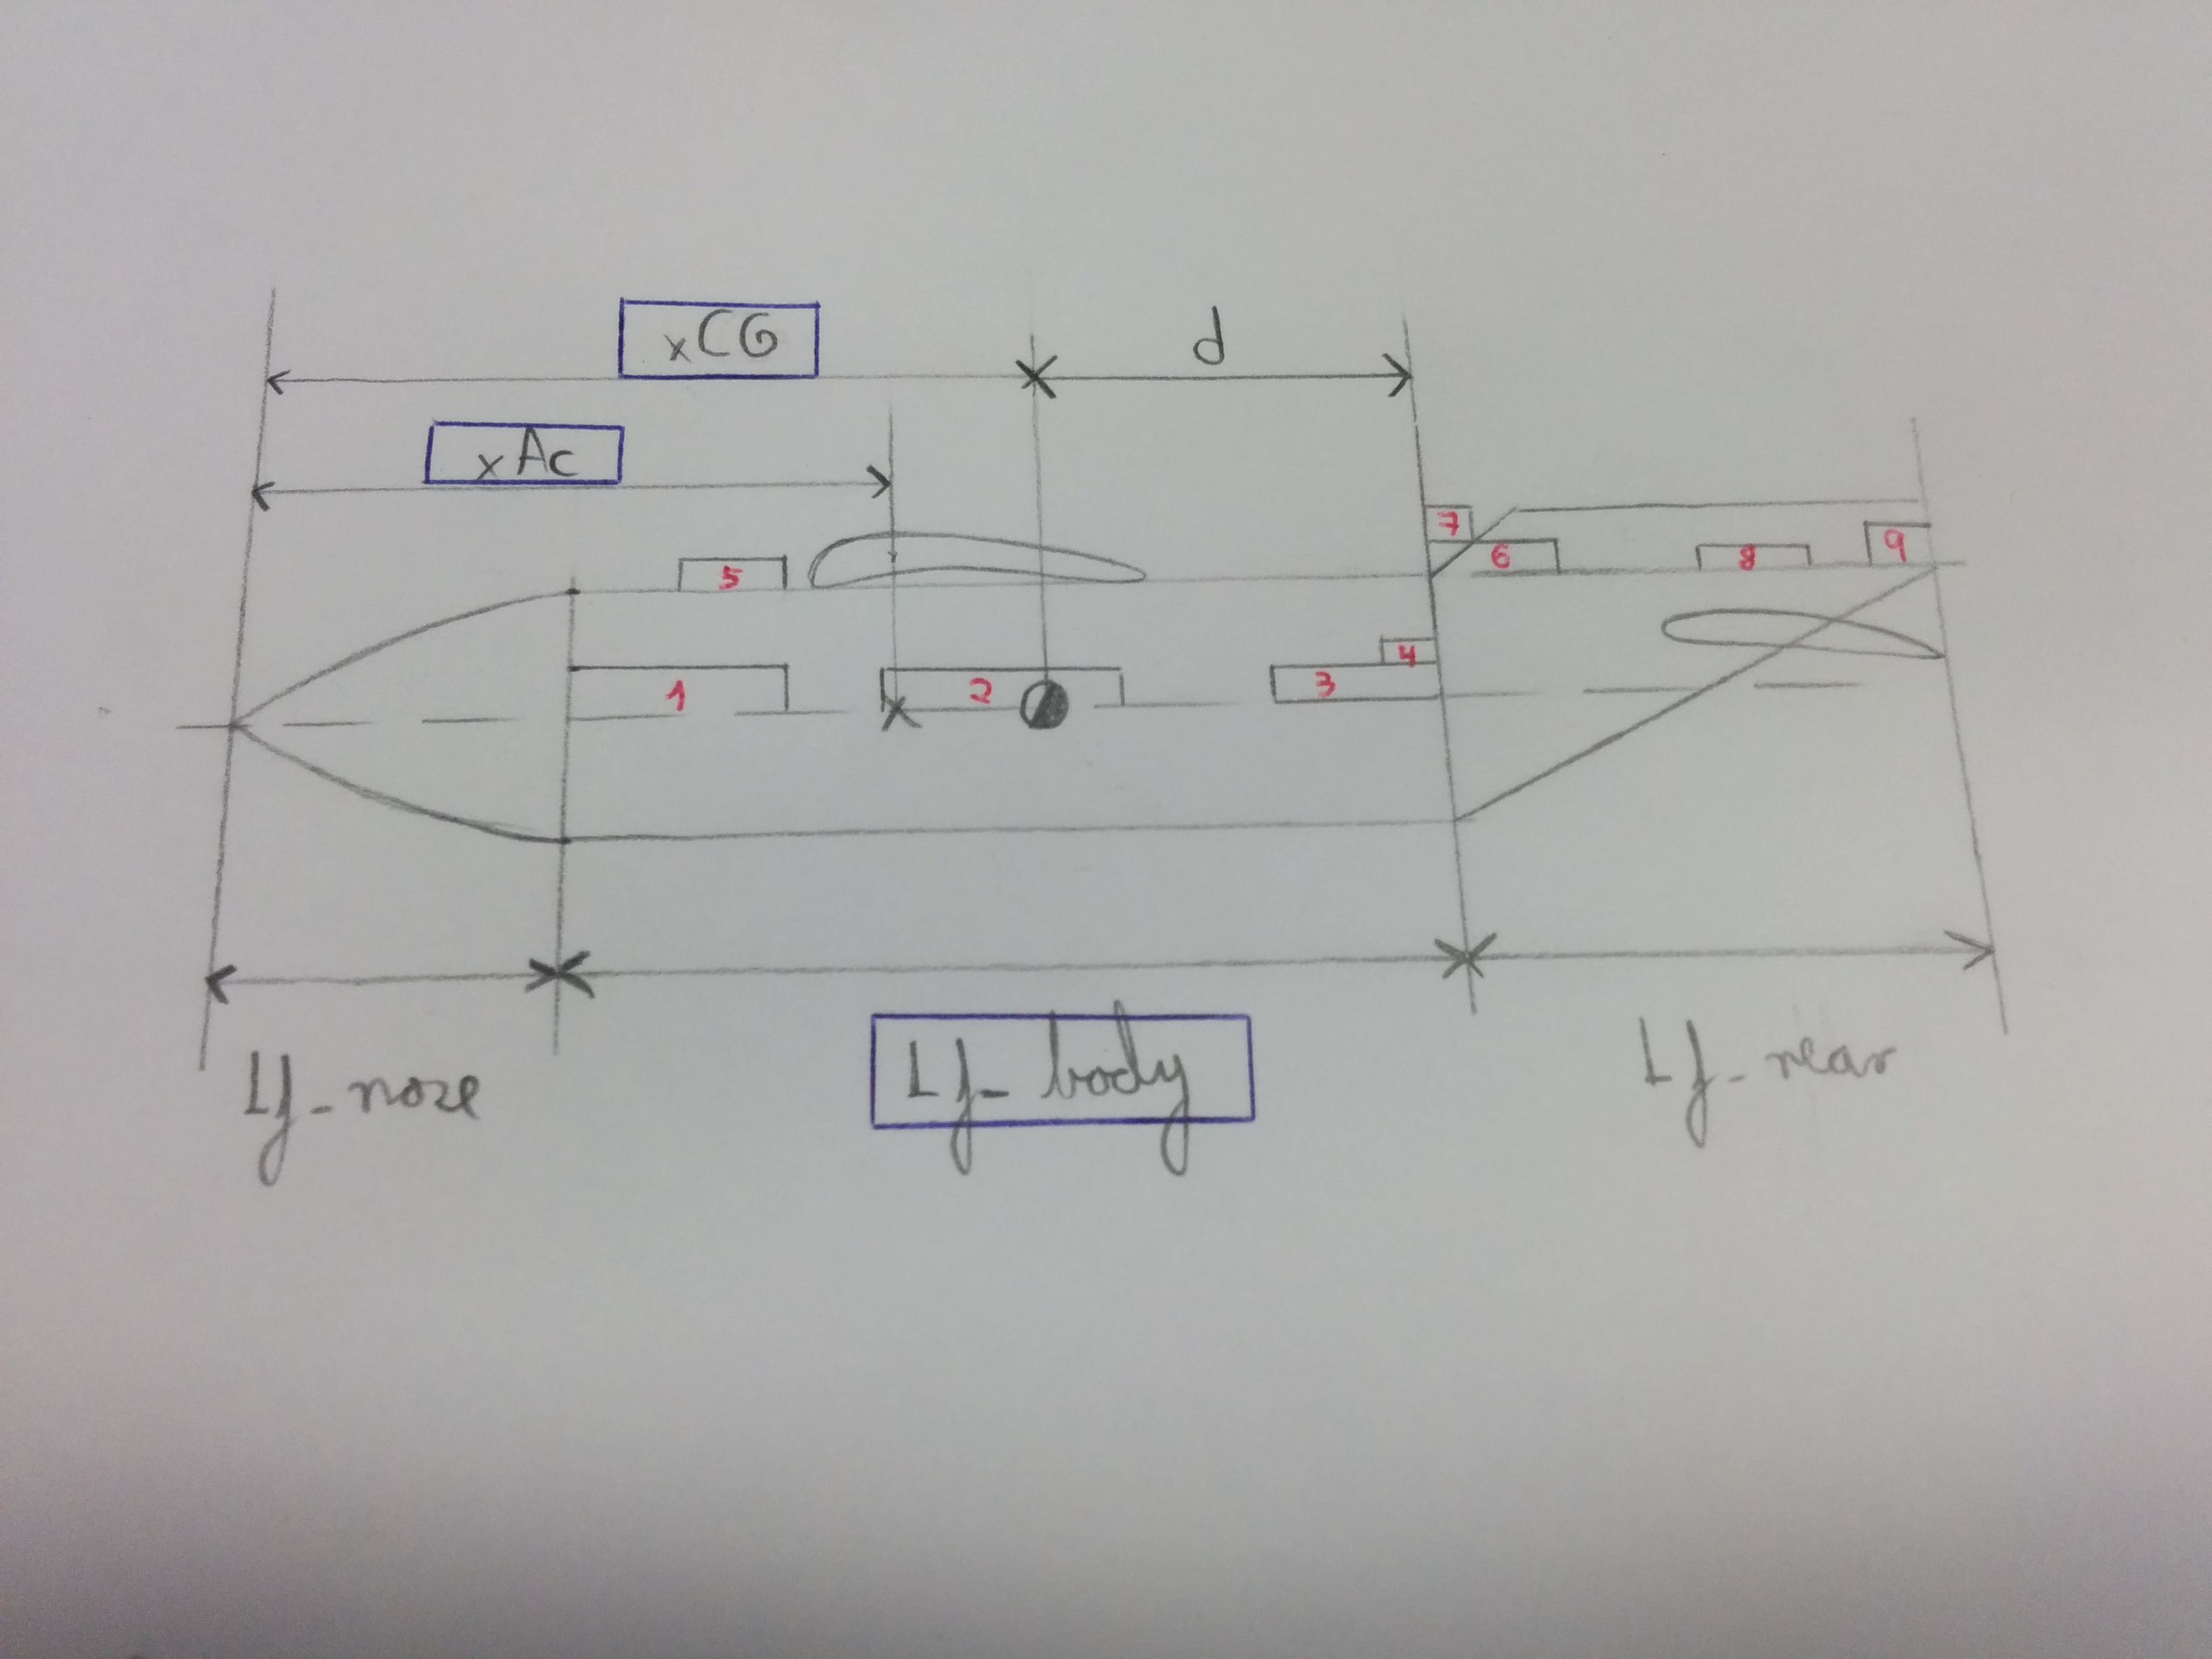 xCG
d
xAc
7
5
6
8
9
4
1
2
3
Lf_nose
Lf_body
Lf_rear